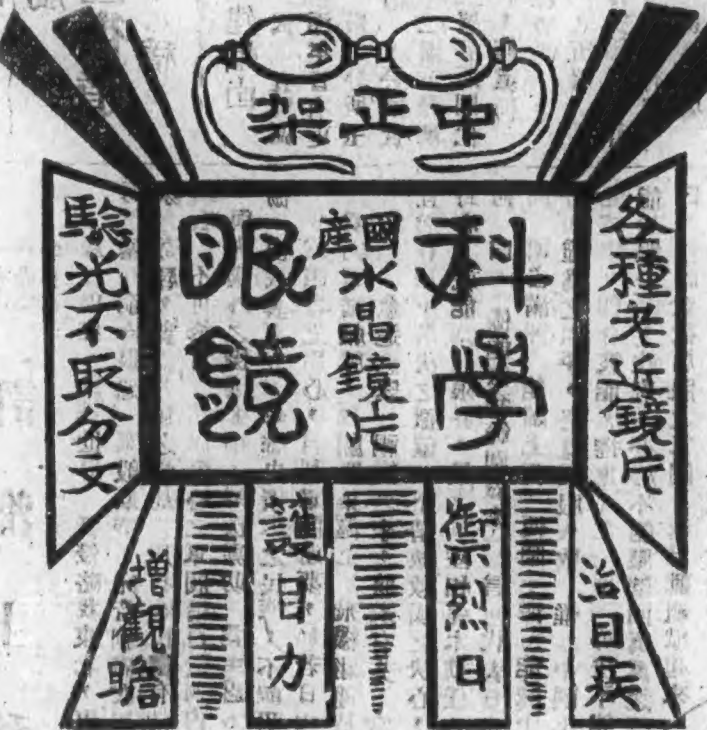 中正架
各種老近鏡片
科學
國產
水晶鏡片
眼鏡
驗光不取分文
治目疾
禦烈日
護目力
增觀瞻